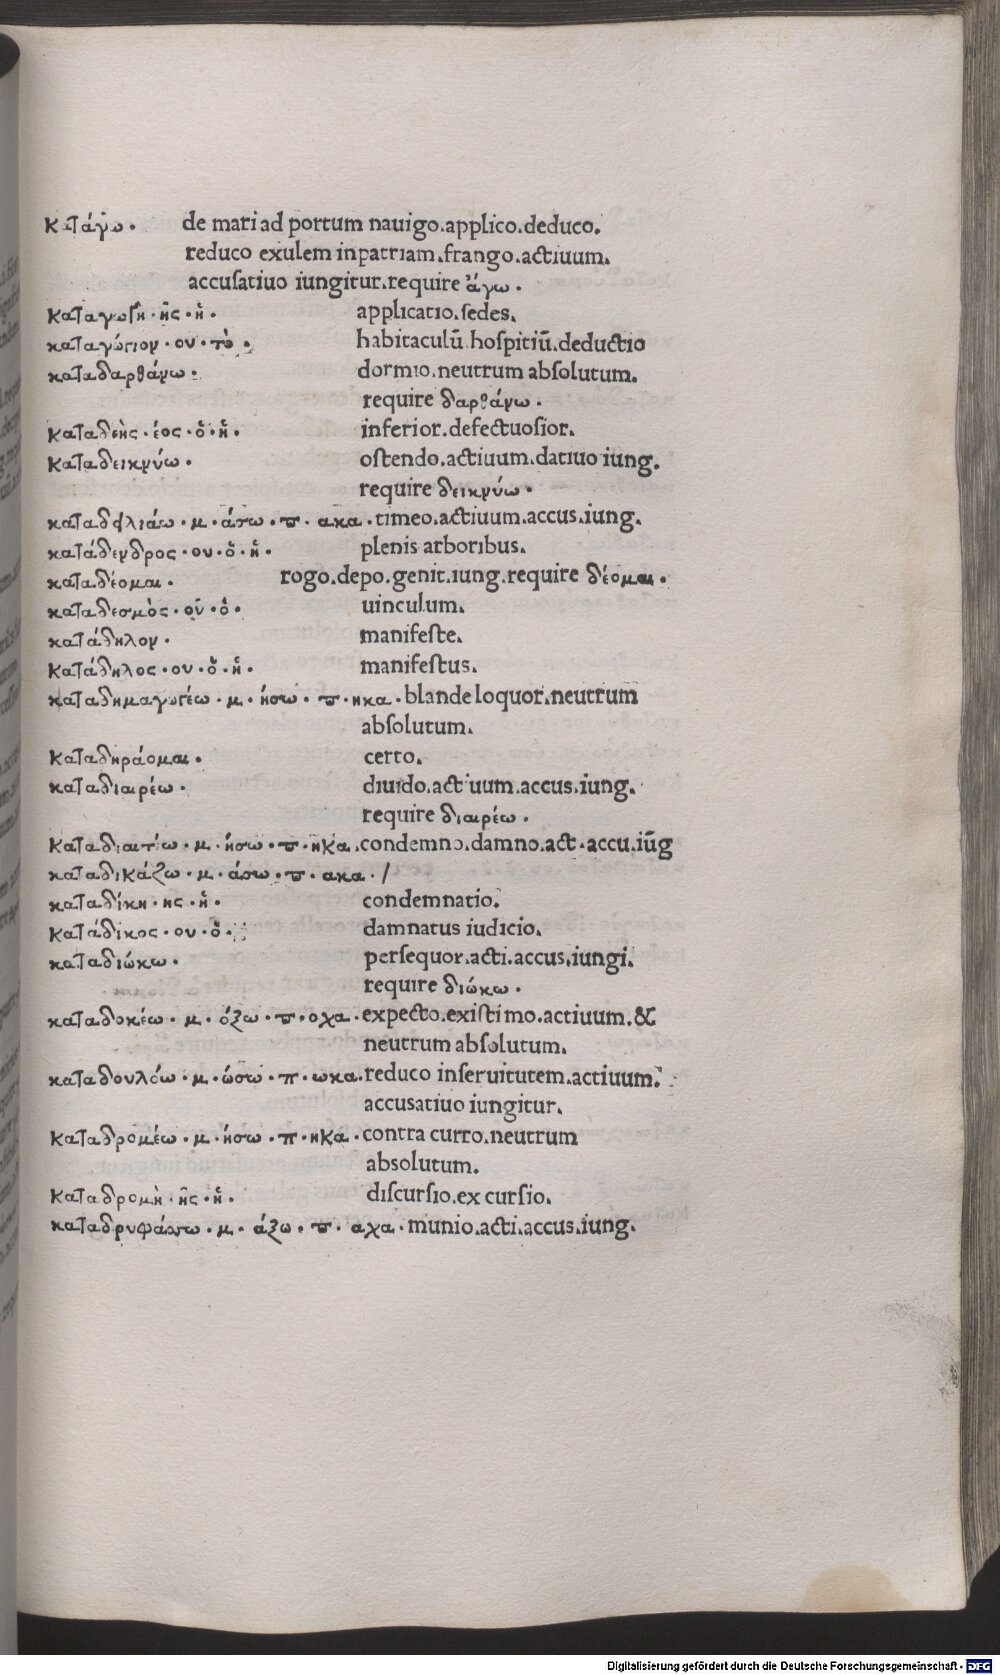 κατάγω. de mari ad portum nauigo.applico.deduco.
reduco exulem inpatriam.frango.actiuum.
accusatiuo iungitur.require ἄγω.
καταγωγὴ·ῆς·ἡ. applicatio.sedes.
καταγώγιον·ου·τὸ. habitaculū hospitiū.deductio
καταδαρθάνω. dormio.neutrum absolutum.
require δαρθάνω.
καταδεὴς·έος·ὁ·ἡ. inferior.defectuosior.
καταδεικνύω. ostendo.actiuum.datiuo iung.
require δεικνύω.
μ·άσω·π·ακα·timeo.actiuum.accus.iung.
κατάδενδρος·ου·ὁ·ἡ. plenis arboribus.
καταδέομαι. rogo.depo.genit.iung.require δέομαι.
καταδεσμὸς·οῦ·ὁ. uinculum.
κατάδηλον. manifeste.
κατάδηλος·ου·ὁ·ἡ. manifestus.
καταδημαγωγέω·μ·ήσω·π·ηκα·blande loquor.neutrum
absolutum.
καταδηράομαι. certo.
καταδιαιρέω. diuido.actiuum.accus.iung.
require διαιρέω.
καταδιαιτέω·μ·ήσω·π·ηκα.condemno.damno.act.accu.iūg
καταδικάζω·μ·άσω·π·ακα·/
καταδίκη·ης·ἡ. condemnatio.
κατάδικος·ου·ὁ. damnatus iudicio.
καταδιώκω. persequor.acti.accus.iungi.
require διώκω.
καταδοκέω·μ·όξω·π·οχα·expecto.existimo.actiuum.&
neutrum absolutum.
καταδουλόω·μ·ώσω·π·ωκα.reduco inseruitutem.actiuum.
accusatiuo iungitur.
καταδρομέω·μ·ήσω·π·ηκα·contra curro.neutrum
absolutum.
καταδρομὴ·ῆς·ἡ. discursio.excursio.
καταδρυφάττω·μ·άξω·π·αχα·munio.acti.accus.iung.
Digitalisierung gefördert durch die Deutsche Forschungsgemeinschaft - DFG